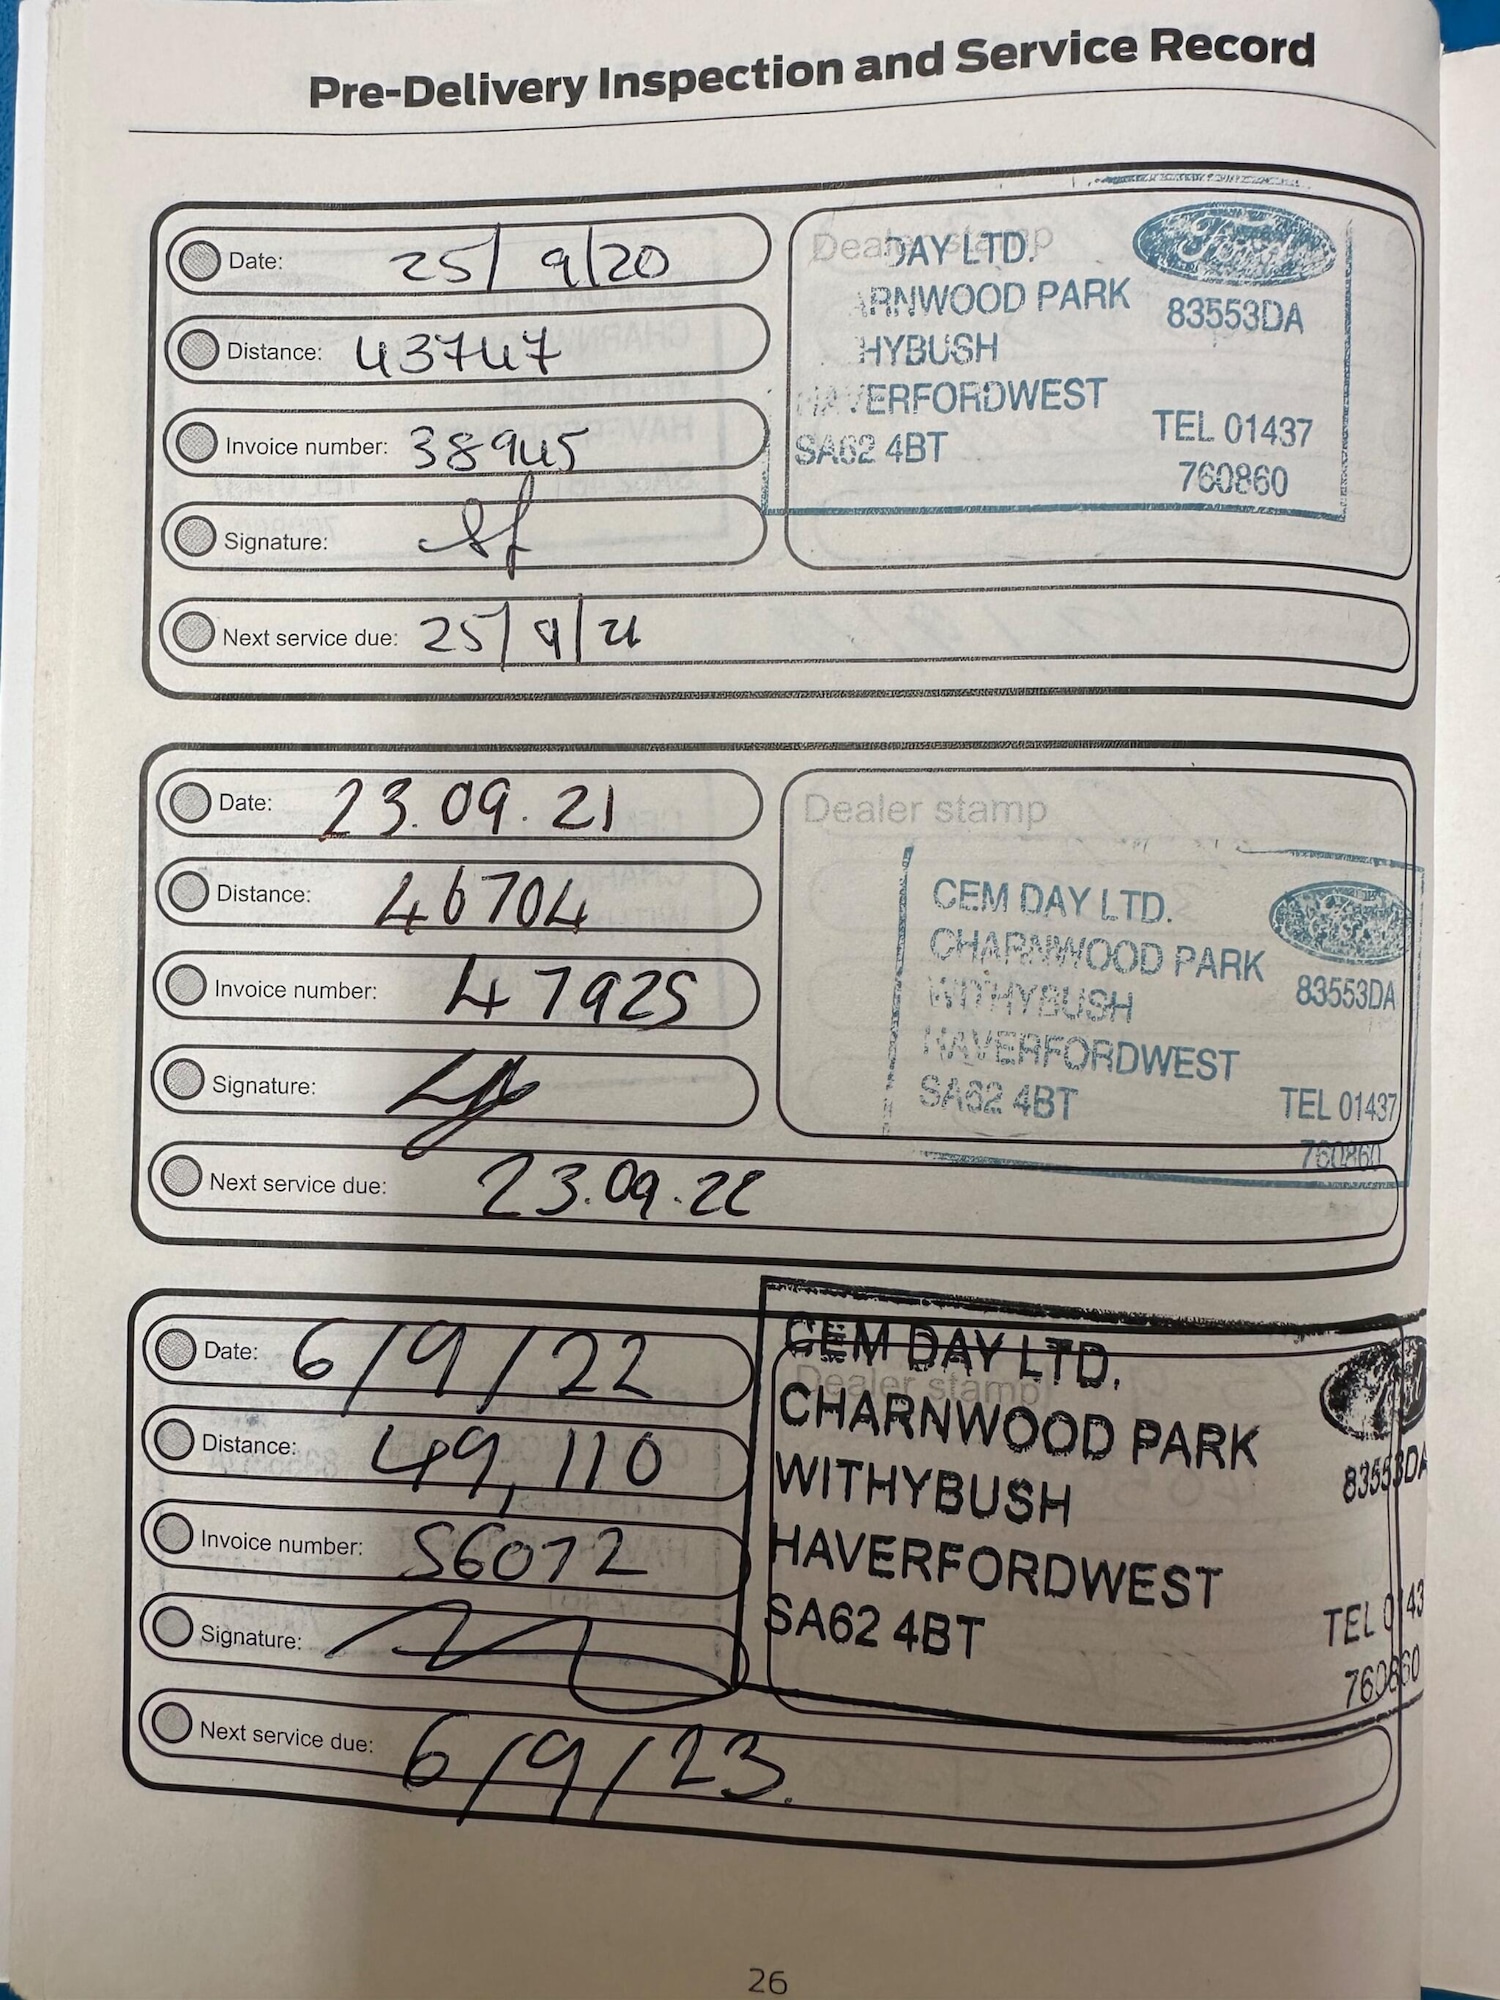 Pre-Delivery Inspection and Service Record
Date: 25/9/20
Distance: 43747
Invoice number: 38945
Signature:
Next service due: 25/9/21
Dealer stamp
DAY LTD.
ARNWOOD PARK
HYBUSH
HAVERFORDWEST
SA62 4BT
Ford
83553DA
TEL 01437
760860
Date: 23.09.21
Distance: 46704
Invoice number: 47925
Signature:
Next service due: 23.09.22
Dealer stamp
CEM DAY LTD.
CHARNWOOD PARK
WITHYBUSH
HAVERFORDWEST
SA62 4BT
83553DA
TEL 01437
760860
Date: 6/9/22
Distance: 49,110
Invoice number: 56072
Signature:
Next service due: 6/9/23.
Dealer stamp
CEM DAY LTD.
CHARNWOOD PARK
WITHYBUSH
HAVERFORDWEST
SA62 4BT
Ford
83553DA
TEL 0143
760860
26